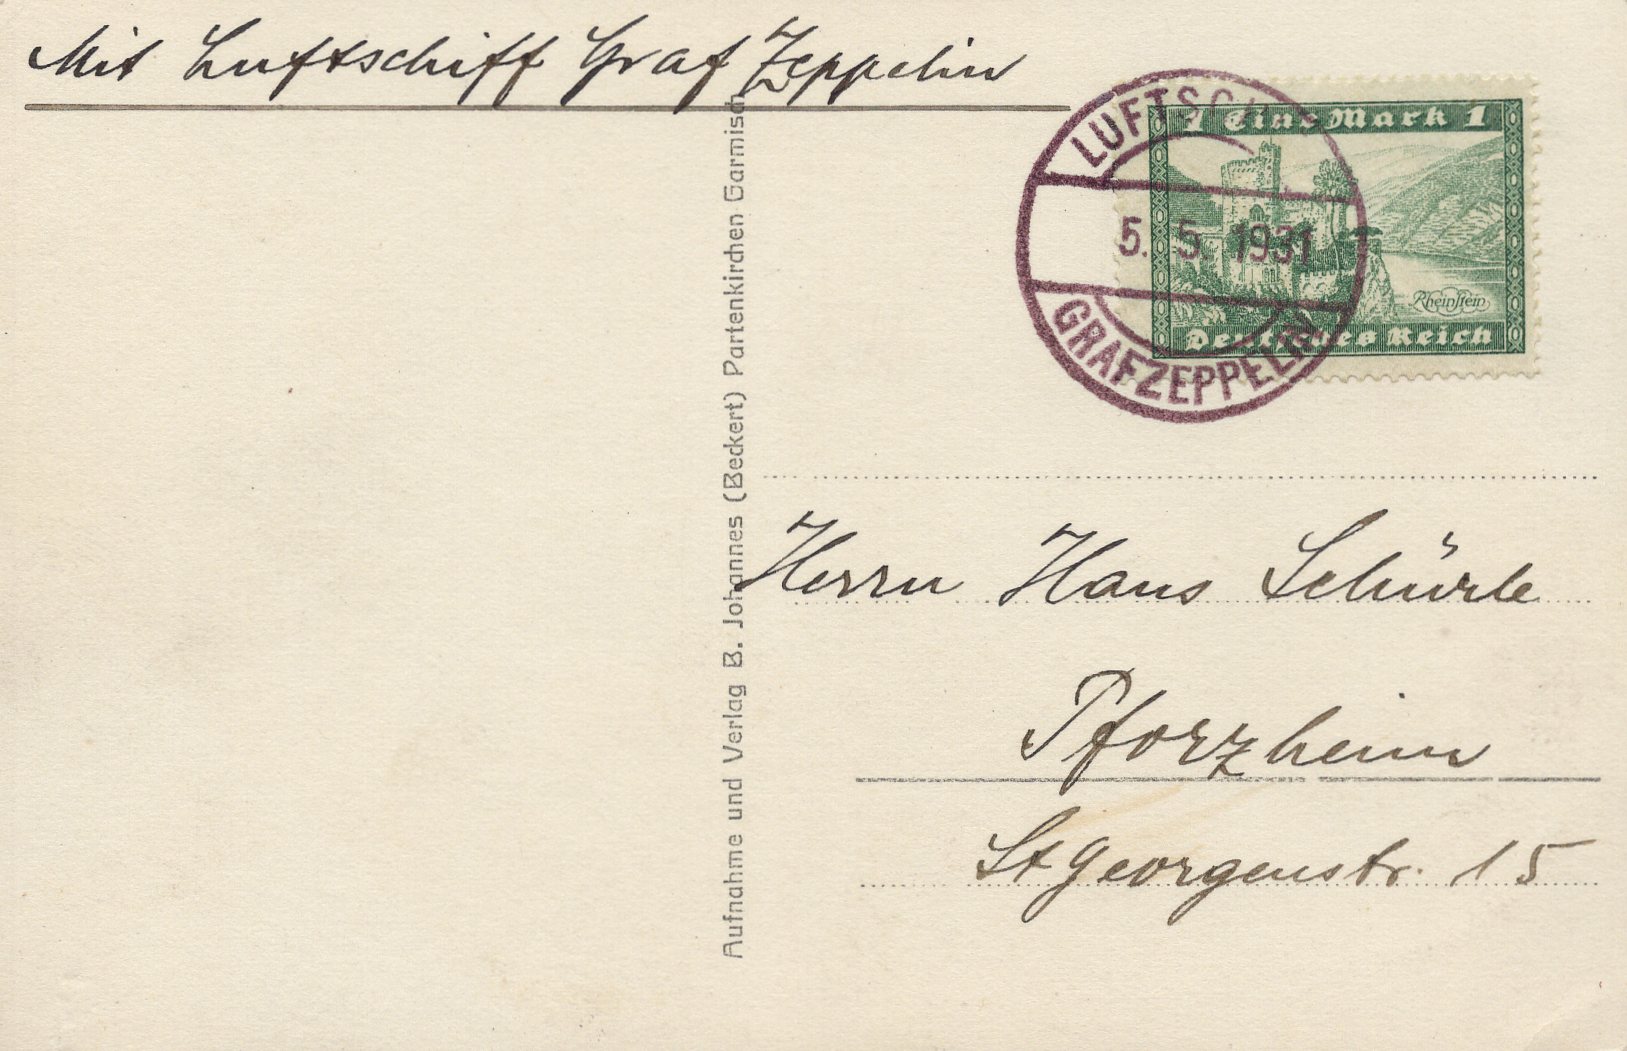 Mit Luftschiff Graf Zeppelin
1 Eine Mark 1
Rheinstein
Deutsches Reich
LUFTSCHIFF
5. 5. 1931
GRAF ZEPPELIN
Aufnahme und Verlag B. Johannes (Beckert) Partenkirchen Garmisch
Herrn Hans Schürle
Pforzheim
St Georgenstr. 15